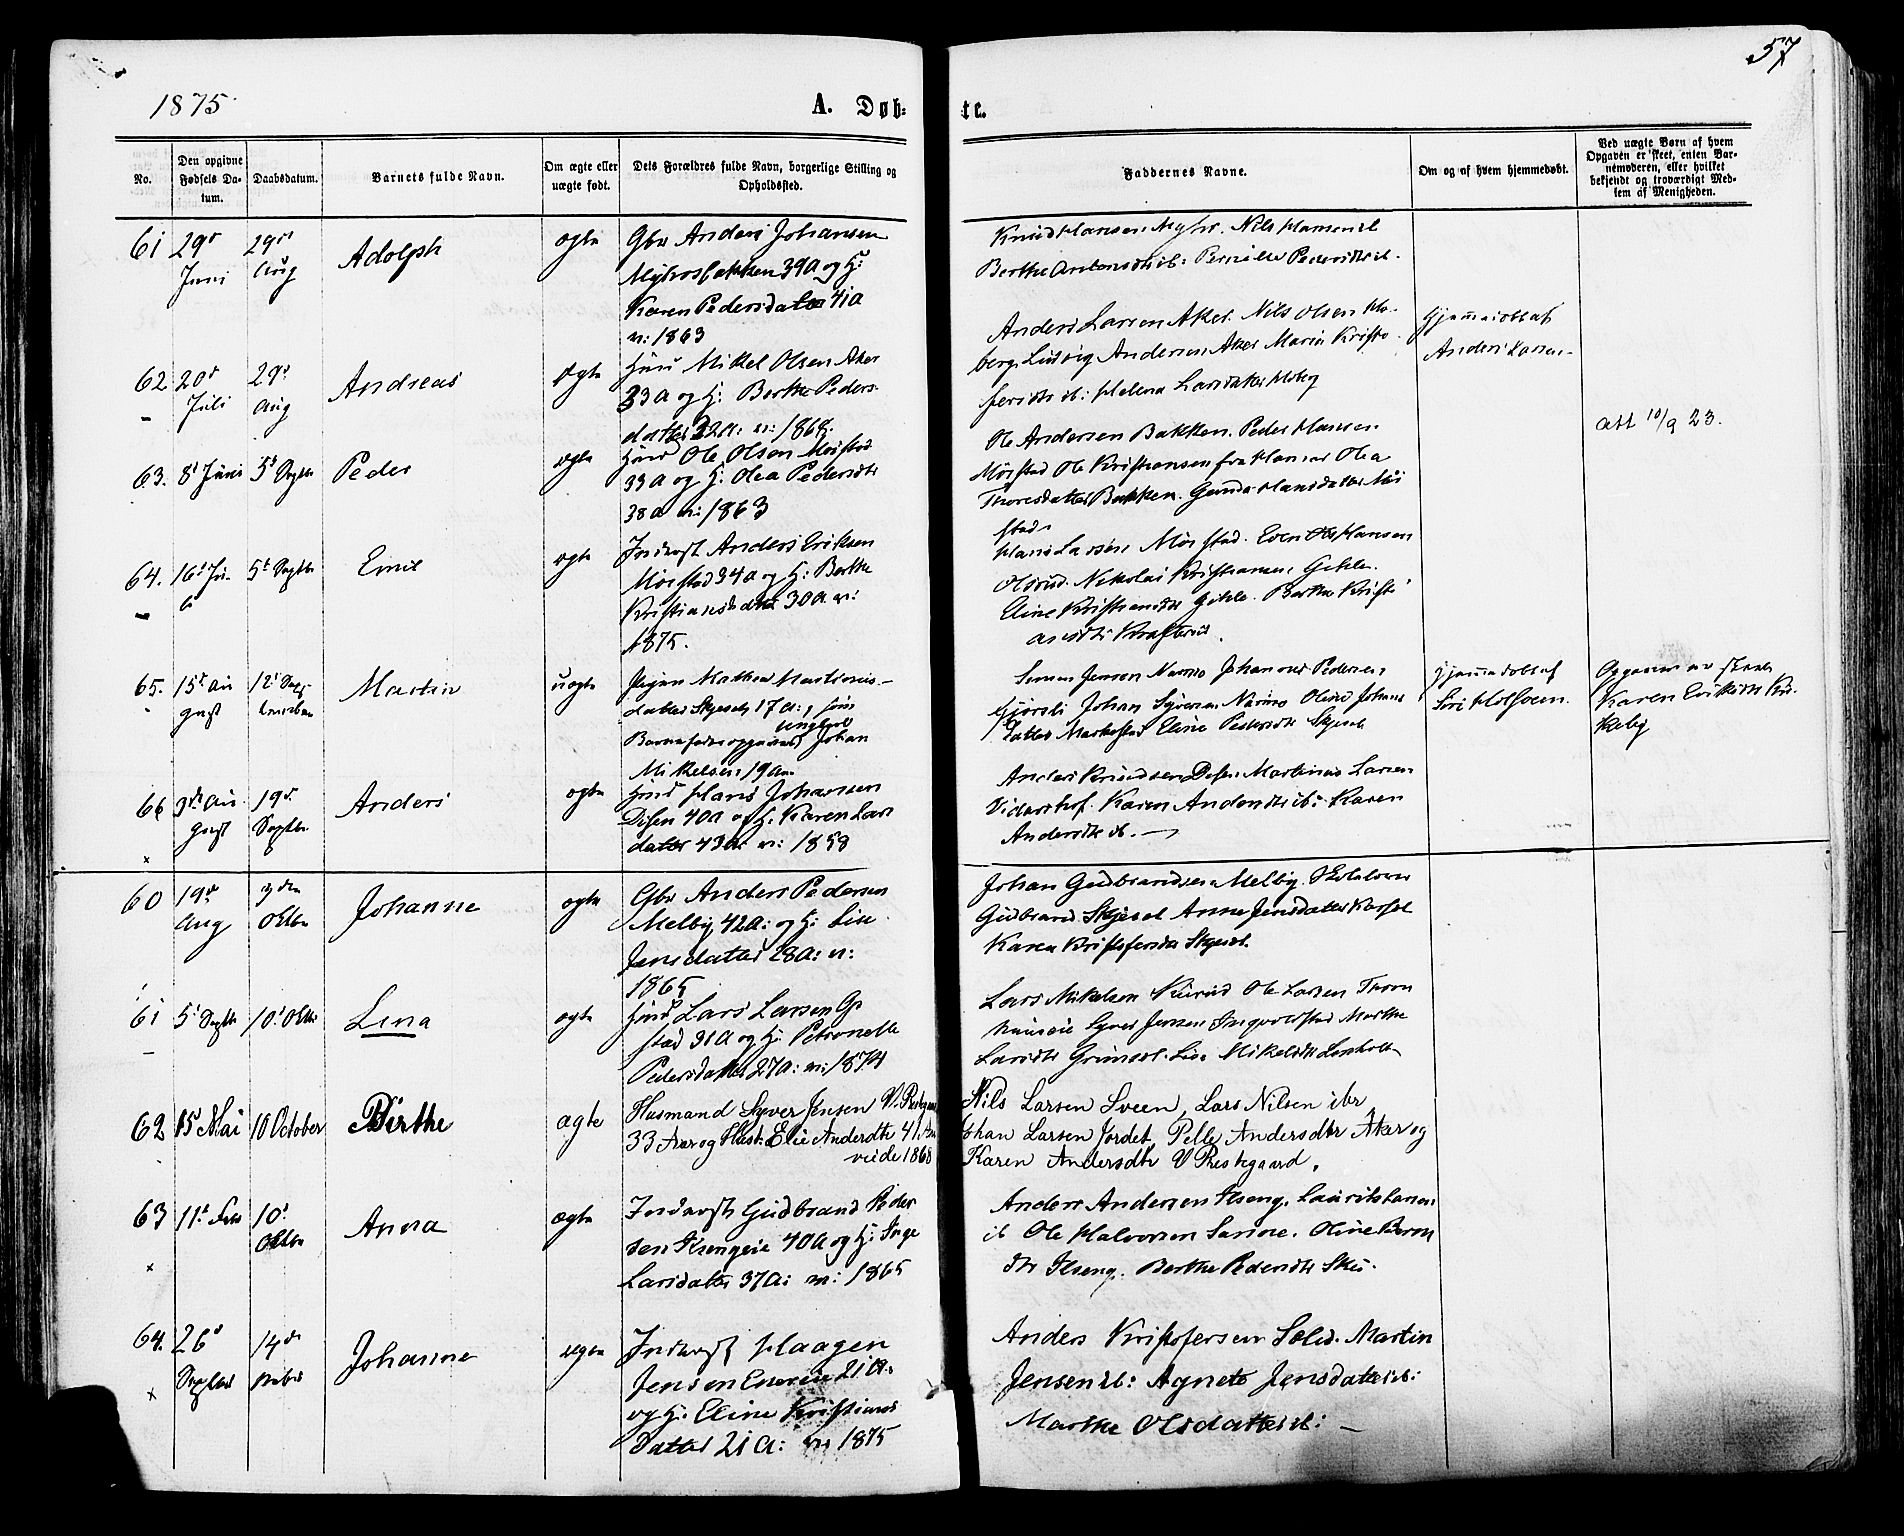 57
1875
A. Døb= te.
No.
Den opgivne Fødsels Da-
tum.
Daabsdatum.
Barnets fulde Navn.
Om ægte eller
uægte født.
Dets Forældres fulde Navn, borgerlige Stilling og
Opholdssted.
Faddernes Navne.
Om og af hvem hjemmedøbt.
Ved uægte Børn af hvem
Opgaven er skeet, enten Bar-
nemoderen, eller hvilket
bekjendt og troværdigt Med-
lem af Menigheden.
61
29d
Juni
29d
Aug
Adolph
ægte
Gbr Anders Johansen
39 A og H:
Karen Pedersdatter 41 A
v: 1863
Knud Hansen Nils Hansen ib
Berthe ib: Pernille Pedersdtr ib.
62
20d
Juli
29d
Aug
Andreas
ægte
Husm Mikel Olsen Aker
33 A og H: Berthe Peders
datter 32 A: v: 1868.
Anders Larsen Aker. Nils Olsen Ho-
berg Ludvig Andersen Aker Marie Kristo
fersdtr ib: Helena Larsdatter Hoberg
Hjemmedøbt af
Anders Larsen
63.
8d Juni
5d Septbr
Peder
ægte
Husm Ole Olsen Mørstad
39 A og H: Olea Pedersdtr
38 A v: 1863
Ole Andersen Bakken. Peder Hansen
Mørstad Ole Kristiansen fra Hamar Olea
Thoresdatter Bakken. Gunda Hansdatter Mør
stad
att 10/9 23.
64.
16d Ju-
li
5d Septbr
Emil
ægte
Inderst Anders Eriksen
Mørstad 34 A og H: Berthe
Kristiansdatter 30 A v:
1875.
Hans Larsen Mørstad. Even Hansen
Olsrud. Nikolai Kristiansen Gihle.
Eline Kristiansdtr Gihle. Berthe Kristi
ansdtr
65.
15d Au
gust
12d Sept
Martin
uægte
Pigen Mathea Martinus-
datter Skjeset 17 A:
ungkarl
Barnefader opgives Johan
Mikelsen 19 Aar
Simen Jensen Narmo Johannes Pedersen
Gjørsli Johan Syversen Narmo Oline Johans
datter Eline Pedersdtr Skjeset
Hjemmedøbt af
Siri Holsveen.
Opgaven av
Karen Eriksdtr
66
3d Au
gust
19d
Septbr.
Anders
ægte
Husm Hans Johansen
Disen 40 A og H. Karen Lars
datter 43 A. v: 1858
Anders Knudsen Disen Martinus Larsen
Vidarshof. Karen ib: Karen
Andersdtr ib.
60
19d
Aug
3den
Oktbr
Johanne
ægte
Gbr Anders Pedersen
Melby 42 A: og H: Lise
Jensdatter 28 A: v:
1865
Johan Gudbrandsen Melby. Skolelærer
Gudbrand Skjeset Anne Jensdatter
Karen Kristofersdtr Skjeset.
61
5d Septbr
10d Oktbr
Lina
ægte
Husm Lars Larsen Gr
stad 31 A og H: Petronelle
Pedersdatter 27 A: v: 1874
Lars Mikelsen Ole Larsen Thorn
huuseie Syver Jensen Ingvoldstad Marthe
Larsdtr Grimset. Lise Mikelsdtr
62
15 Mai
10 October
Birthe
ægte
Husmand Syver Jensen V. Prestegaard
33 Aar og Hust. Elie Andersdtr 41 Aar
viede 1868
Nils Larsen Sveen, Lars Nilsen ibr
Johan Larsen Jordet, Pelle Andersdtr Aker og
Karen Andersdtr V Prestegaard,
63
11d Feb
10d
Oktbr
Anna
ægte
Inderst Gudbrand Peder
sen 40 A og H: Inge
Larsdatter 37 A: v: 1865
Anders Andersen Ilseng, Laurits Larsen
ib Ole Halvorsen Oline
dtr Ilseng. Berthe Pedersdtr
64.
26d
Septbr
14d
Johanne
ægte
Inderst Haagen
Jensen 21 A:
og H. Eline Kristians
datter 21 A: v: 1875
Anders Kristofersen Martin
Jensen ib: Agnete Jensdatter ib:
Marthe Olsdatter ib: —